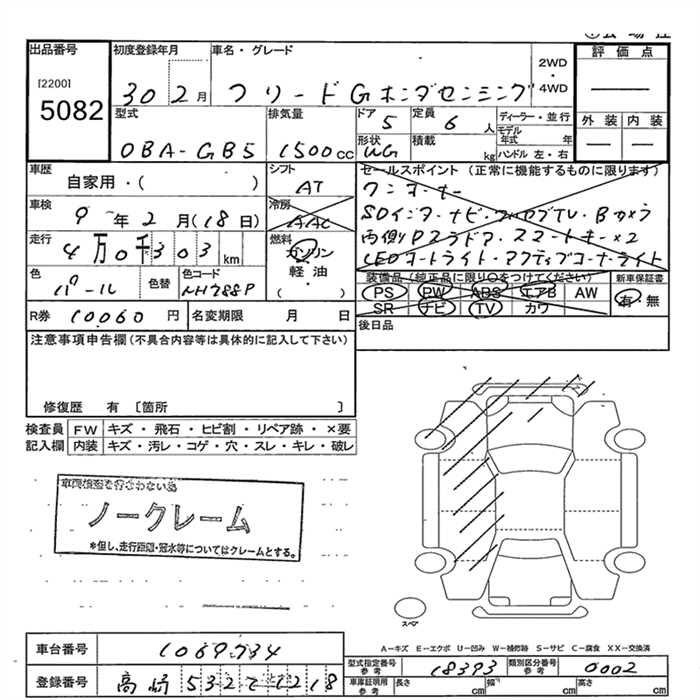 出品番号
[2200]
5082
初度登録年月
30 2月
車名・グレード
フリードGホンダセンシング
2WD
・
4WD
評価点
型式
DBA-GB5
排気量
1500cc
ドア
5
定員
6 人
形状
WG
積載
kg
ディーラー・並行
モデル年式 年
ハンドル 左・右
外装 内装
車歴
自家用・( )
シフト
AT
車検
9年2月(18日)
冷房
AAC
走行
4万0千303km
燃料
ガソリン
軽油
・( )
色
パール
色替
色コード
NH788P
R券
10060円
名変期限 月 日
セールスポイント(正常に機能するものに限ります)
ワンオーナー
SDインターナビ・フルセグTV・Bカメラ
両側Pスラドア・スマートキー×2
LEDオートライト・アクティブコーナーライト
装備品(純正品に限り○をつけてください)
PS PW ABS エアB AW
SR ナビ TV カワ
新車保証書
有・無
後日品
注意事項申告欄(不具合内容等は具体的に記入して下さい)
修復歴 有 [箇所 ]
検査員記入欄
FW キズ・飛石・ヒビ割・リペア跡・×要
内装 キズ・汚レ・コゲ・穴・スレ・キレ・破レ
ノークレーム
*但し、走行距離・冠水等についてはクレームとする。
スペア
A-キズ E-エクボ U-凹み W-補修跡 S-サビ C-腐食 XX-交換済
車台番号
1069734
登録番号
高崎 532 て 1218
型式指定番号
参考
18393
類別区分番号
参考
0002
車庫証明用
参考
長さ cm
幅 cm
高さ cm